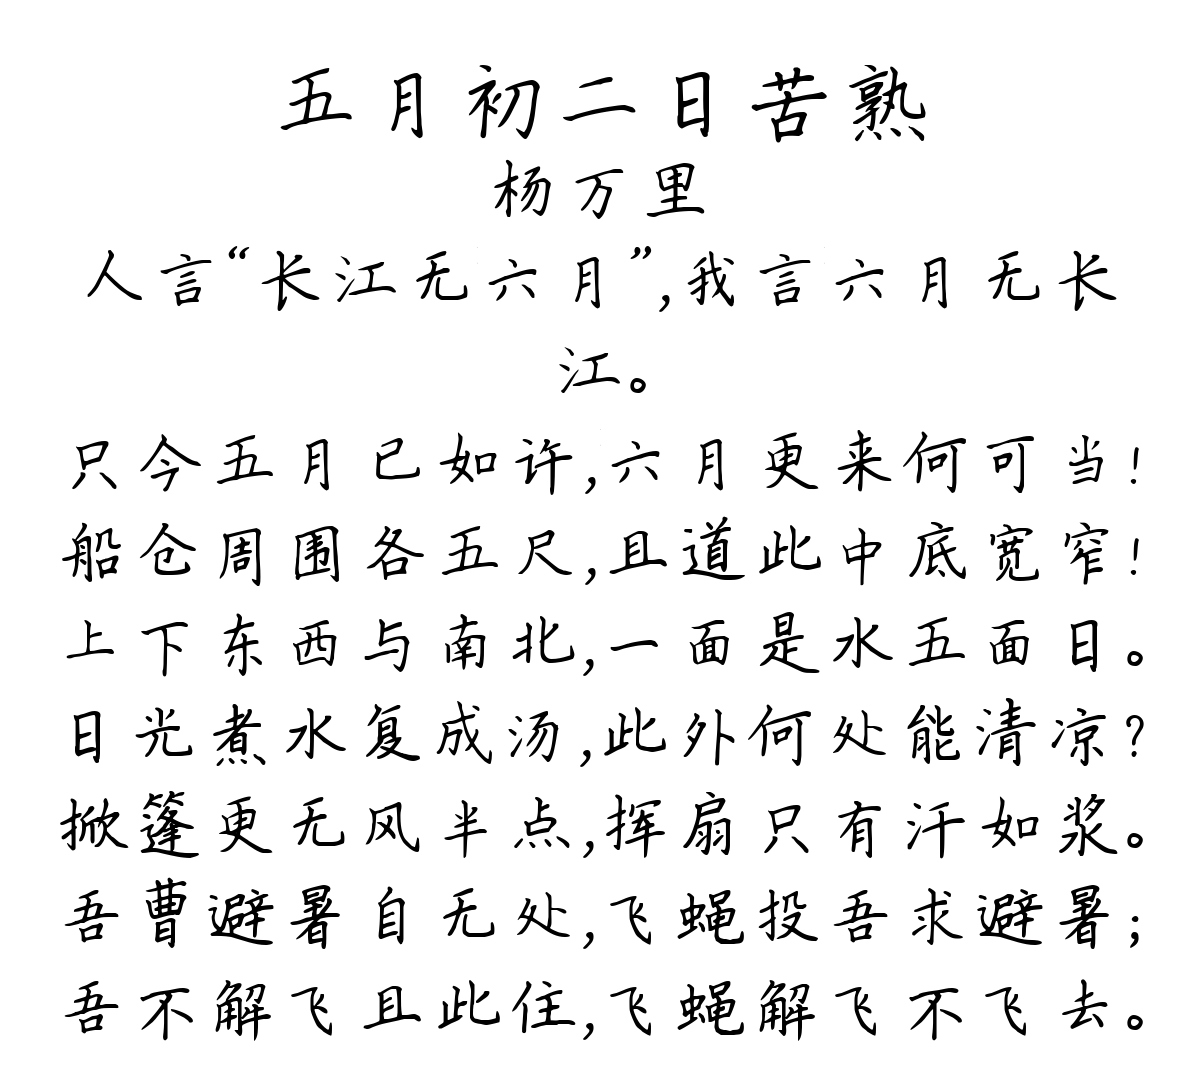 五月初二日苦熟
杨万里
人言“长江无六月”,我言六月无长
江。
只今五月已如许,六月更来何可当!
船仓周围各五尺,且道此中底宽窄!
上下东西与南北,一面是水五面日。
日光煮水复成汤,此外何处能清凉?
掀篷更无风半点,挥扇只有汗如浆。
吾曹避暑自无处,飞蝇投吾求避暑;
吾不解飞且此住,飞蝇解飞不飞去。